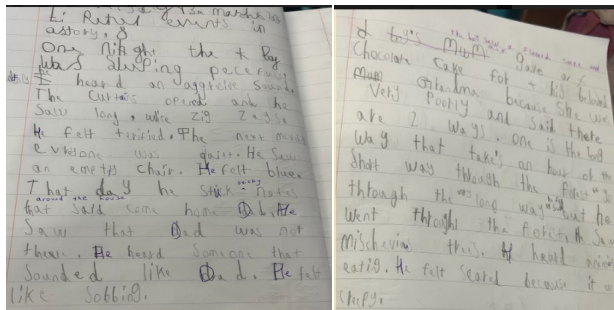 L: Retell events in
a story.
One night the Boy
Was sleeping
heard an aggresive sound.
The Curtains opend and he
Saw long, wite zig zags.
He felt terified. The next
evryone was quiet. He Saw
an empty chair. He felt blue.
That day he stick sticky notes
around the house
that said come home Dad. He
Saw that Dad was not
there. He heard Someone that
Sounded like Dad. He felt
like Sobbing.
Mum gave a
Chocolate Cake for his beloved
Grandma because She was
Very Poorly and said there
are 2 ways. one is the long
way that take's an hour or the
Short way through the forest
through the long way but he
went through the forest. He Saw
Mischevius trees. He heard
eating. He felt Scared because it was
creepy.